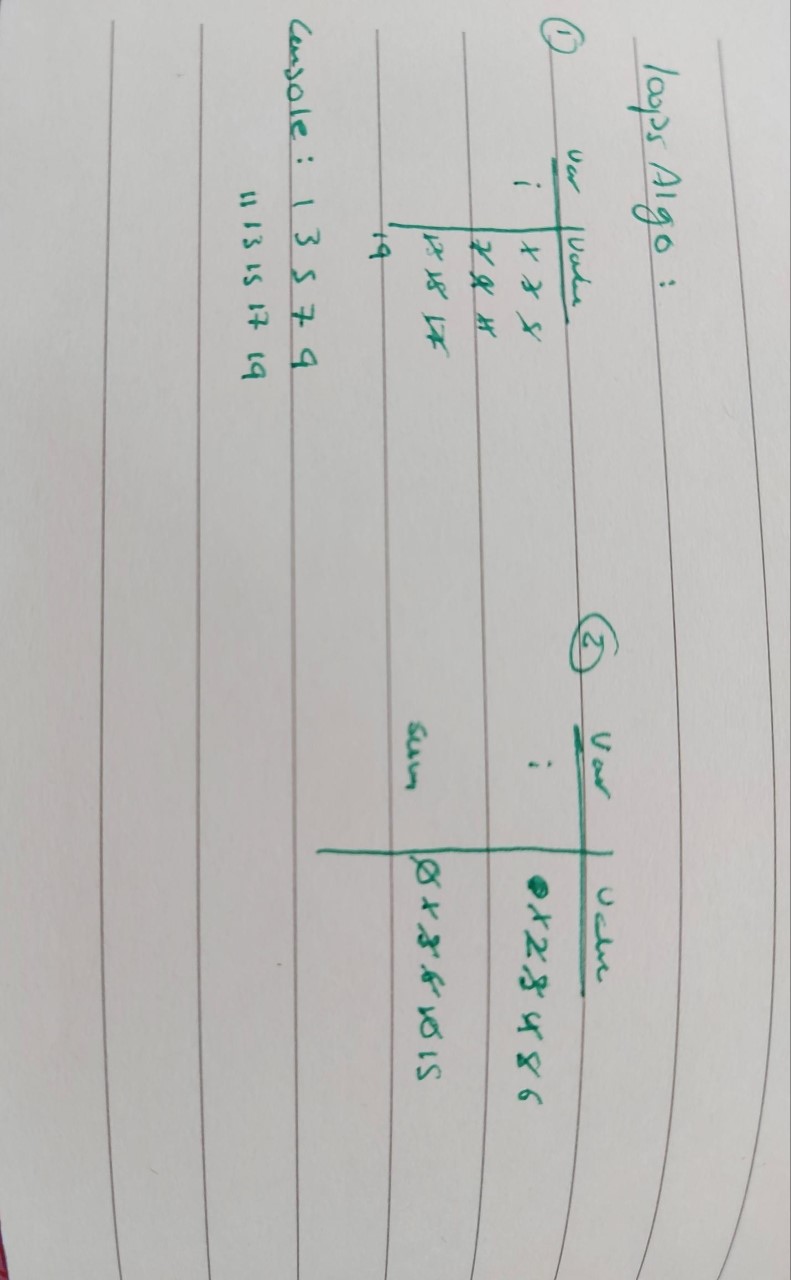 loops Algo :
① var value
i 1 3 5
7 9 11
13 15 17
19
Console : 1 3 5 7 9
11 13 15 17 19
② Var Value
i 0 1 2 3 4 5 6
sum 0 1 3 6 10 15